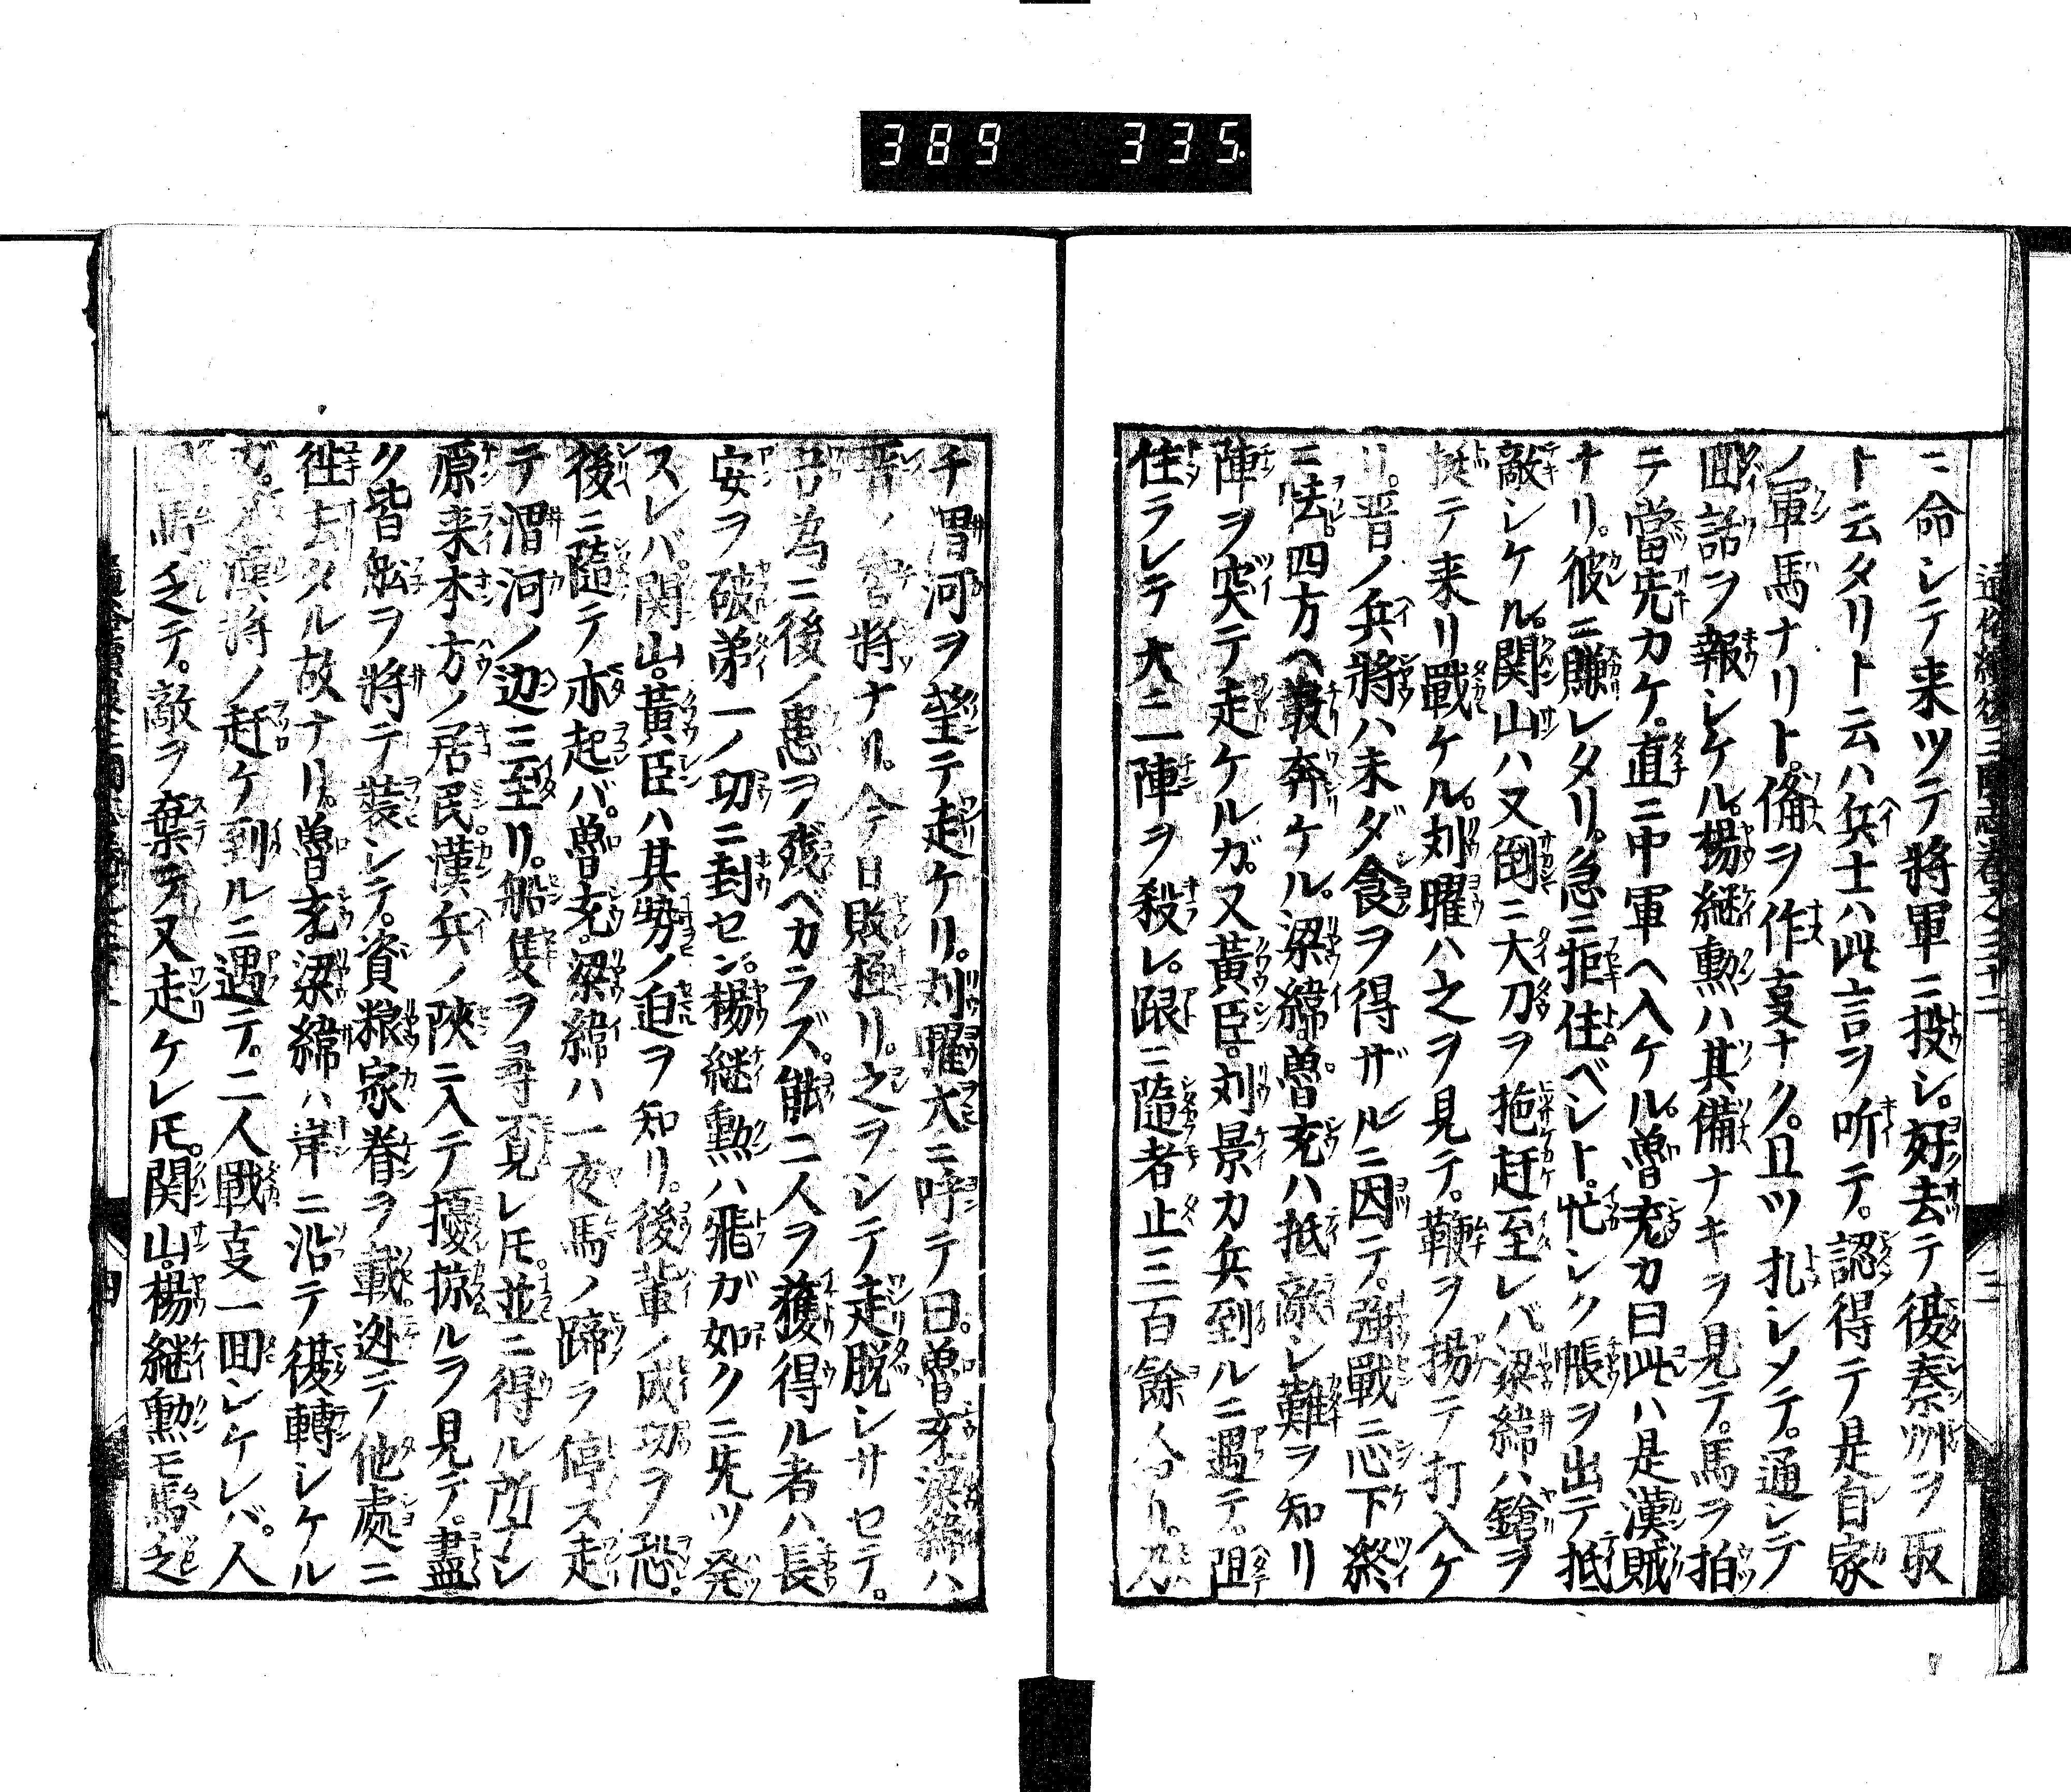 389 335
通俗續後三國志卷之二十二
ニ命シテ来ツテ将軍ニ投シ。好去テ後秦州ヲ取
ト云タリト云ハ兵士ハ此言ヲ听テ。認得テ是自家
ノ軍馬ナリト。備ヲ作㕝ナク。且ツ扎シメテ。通シテ
回話ヲ報シケル。楊継勳ハ其備ナキヲ見テ。馬ヲ拍
テ當先カケ。直ニ中軍ヘ入ケル。曽充カ曰此ハ是漢賊
ナリ。彼ニ賺レタリ。急ニ拒住ベシト。忙シク帳ヲ出テ抵
敵シケル。関山ハ又倒ニ大刀ヲ拖赶至レバ梁緯ハ鎗ヲ
挺テ来リ戰ケル。刘曜ハ之ヲ見テ。鞭ヲ揚テ打入ケ
リ。晋ノ兵將ハ未ダ食ヲ得ザルニ因テ。強戰ニ心下終
ニ怯。四方ヘ叢奔ケル。梁緯。曽充ハ抵敵シ難ヲ知リ
陣ヲ突テ走ケルガ。又黃臣。刘景カ兵到ルニ遇テ。阻
住ラレテ大ニ一陣ヲ殺レ。跟ニ隨者止三百餘人ナリ。乃
チ渭河ヲ望テ走ケリ。刘曜大ニ呼テ曰。曽充梁緯ハ
晋ノ智將ナリ。今日敗極リ。之ヲシテ走脱シサセテ。
吾為ニ後ノ患ヲノ残ベカラズ。能二人ヲ獲得ル者ハ長
安ヲ破第一ノ功ニ封セン。楊継勲ハ飛ガ如クニ先ツ発
スレバ。関山。黃臣ハ其勢ノ迫ヲ知リ。後輩ノ成功ヲ恐。
後ニ隨テ亦起バ。曽充。梁緯ハ一夜馬ノ蹄ヲ停ス走
テ渭河ノ辺ニ至リ。船隻ヲ尋覓レ𪜈。並ニ得ル所ナシ
原来本方ノ居民。漢兵ノ陝ニ入テ擾掠ルヲ見テ。盡
ク皆舩ヲ將テ装シテ。資粮家眷ヲ載。迯テ他處ニ
徃去タル故ナリ。曽充。梁緯ハ岸ニ沿テ後轉シケル
ガ。漢將ノ赶ケ到ルニ遇テ。二人戰㕝一回シケレバ。人
馬乏テ。敵ヲ棄テ又走ケレ𪜈。関山。楊継勲モ馬乏